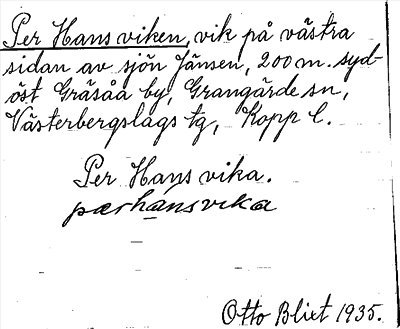 Per Hans viken, vik på västra
sidan av sjön Jänsen, 200 m. syd-
öst Gräsåå by, Grangärde sn,
Västerbergslags tg, Kopp l.
Per Hans vika.
pærhansvika
Otto Blixt 1935.